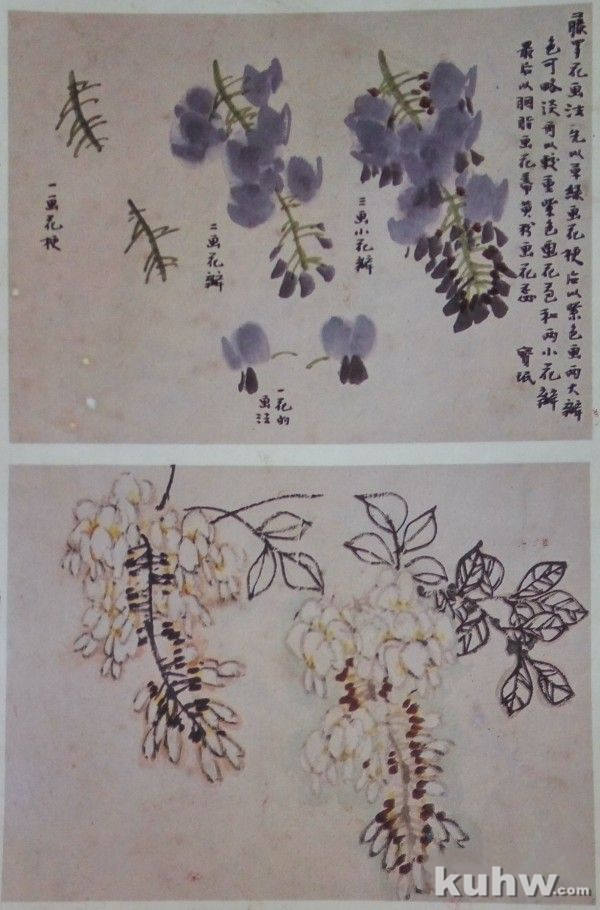 藤罗花画法 先以草绿画花梗后以紫色画两大瓣
色可略淡再以较重紫色画花苞和两小花瓣
最后以胭脂画花蒂黄粉画花蕊 宝珉
三画小花瓣
二画花瓣
一画花梗
一花的
画法
kuhw.com